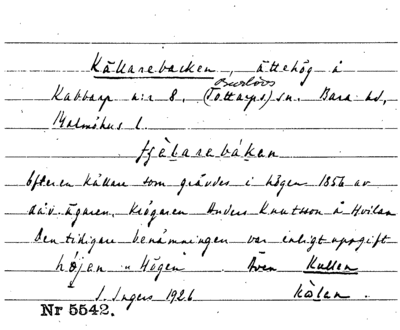 Källarebacken, ättehög å
Burlövs
Kabbarp n:r 8, (Tottarps) sn. Bara hd,
Malmöhus l.
Efter en källare som grävdes i högen 1856 av
dåv. ägaren, krögaren Anders Knutsson å Hvilan
Den tidigare benämningen var enligt uppgift
höjen "Högen" Även Kullen
I. Ingers 1926 kòlan.
Nr 5542.